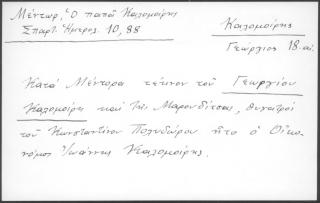 Μέντωρ, Ὁ παπᾶ Καλομοίρης
Σπαρτ. Ἡμερολ. 10, 88
Καλομοίρης
Γεώργιος 18. αἰ.
Κατὰ Μέντορα τέκνον τοῦ Γεωργίου
Καλομοίρη καὶ τῆς Μαρουδίτσας, θυγατρὸς
τοῦ Κωνσταντίνου Πολυδώρου ἦτο ὁ Οἰκο-
νόμος Ἰωάννης Καλομοίρης.